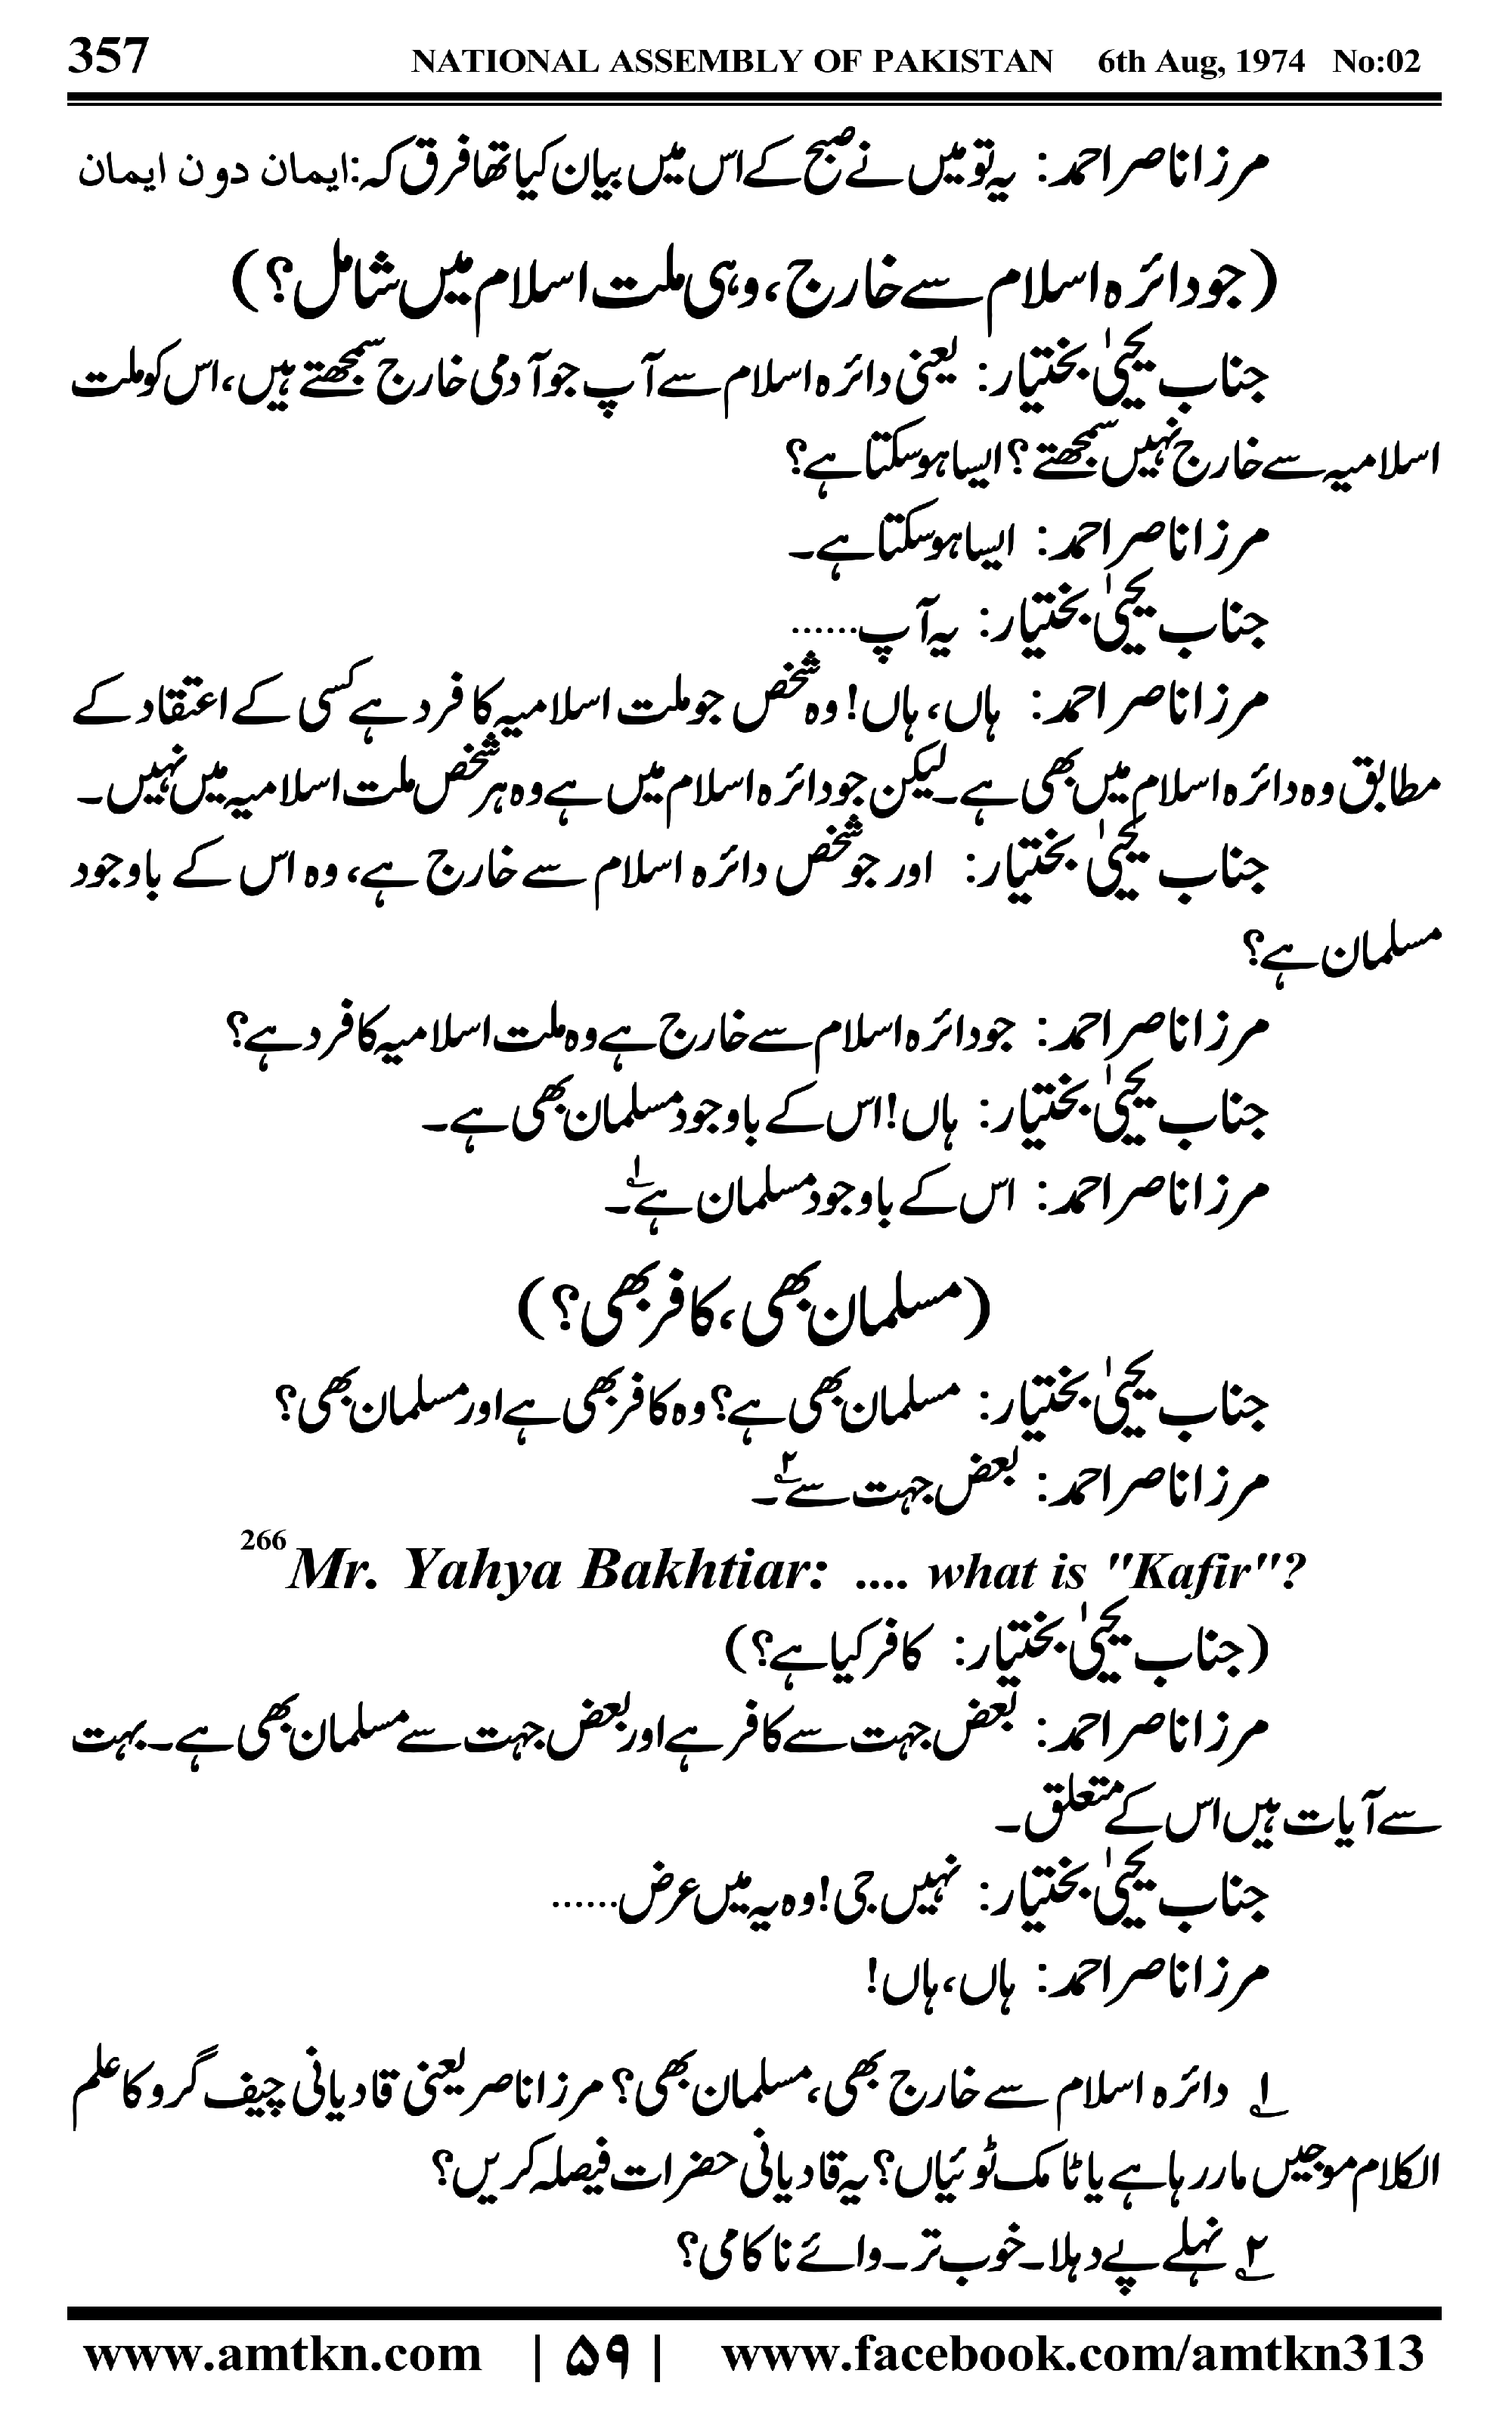 357 NATIONAL ASSEMBLY OF PAKISTAN 6th Aug, 1974 No:02
مرزا ناصر احمد: یہ تو میں نے صبح کے اس میں بیان کیا تھا فرق کہ: ایمان دون ایمان
(جو دائرہ اسلام سے خارج، وہی ملت اسلام میں شامل؟)
جناب یحییٰ بختیار: یعنی دائرہ اسلام سے آپ جو آدمی خارج سمجھتے ہیں، اس کو ملت
اسلامیہ سے خارج نہیں سمجھتے؟ ایسا ہو سکتا ہے؟
مرزا ناصر احمد: ایسا ہو سکتا ہے۔
جناب یحییٰ بختیار: یہ آپ......
مرزا ناصر احمد: ہاں، ہاں! وہ شخص جو ملت اسلامیہ کا فرد ہے کسی کے اعتقاد کے
مطابق وہ دائرہ اسلام میں بھی ہے۔ لیکن جو دائرہ اسلام میں ہے وہ ہر شخص ملت اسلامیہ میں نہیں۔
جناب یحییٰ بختیار: اور جو شخص دائرہ اسلام سے خارج ہے، وہ اس کے باوجود
مسلمان ہے؟
مرزا ناصر احمد: جو دائرہ اسلام سے خارج ہے وہ ملت اسلامیہ کا فرد ہے؟
جناب یحییٰ بختیار: ہاں! اس کے باوجود مسلمان بھی ہے۔
مرزا ناصر احمد: اس کے باوجود مسلمان ہے۱؎۔
(مسلمان بھی، کافر بھی؟)
جناب یحییٰ بختیار: مسلمان بھی ہے؟ وہ کافر بھی ہے اور مسلمان بھی؟
مرزا ناصر احمد: بعض جہت سے۲؎۔
266 Mr. Yahya Bakhtiar: .... what is "Kafir"?
(جناب یحییٰ بختیار: کافر کیا ہے؟)
مرزا ناصر احمد: بعض جہت سے کافر ہے اور بعض جہت سے مسلمان بھی ہے۔ بہت
سے آیات ہیں اس کے متعلق۔
جناب یحییٰ بختیار: نہیں جی! وہ یہ میں عرض......
مرزا ناصر احمد: ہاں، ہاں!
۱؎ دائرہ اسلام سے خارج بھی، مسلمان بھی؟ مرزا ناصر یعنی قادیانی چیف گرو کا علم
الکلام موجیں مار رہا ہے یا ٹامک ٹوئیاں؟ یہ قادیانی حضرات فیصلہ کریں؟
۲؎ نہلے پے دہلا۔ خوب تر۔ وائے ناکامی؟
www.amtkn.com | ۵۹ | www.facebook.com/amtkn313